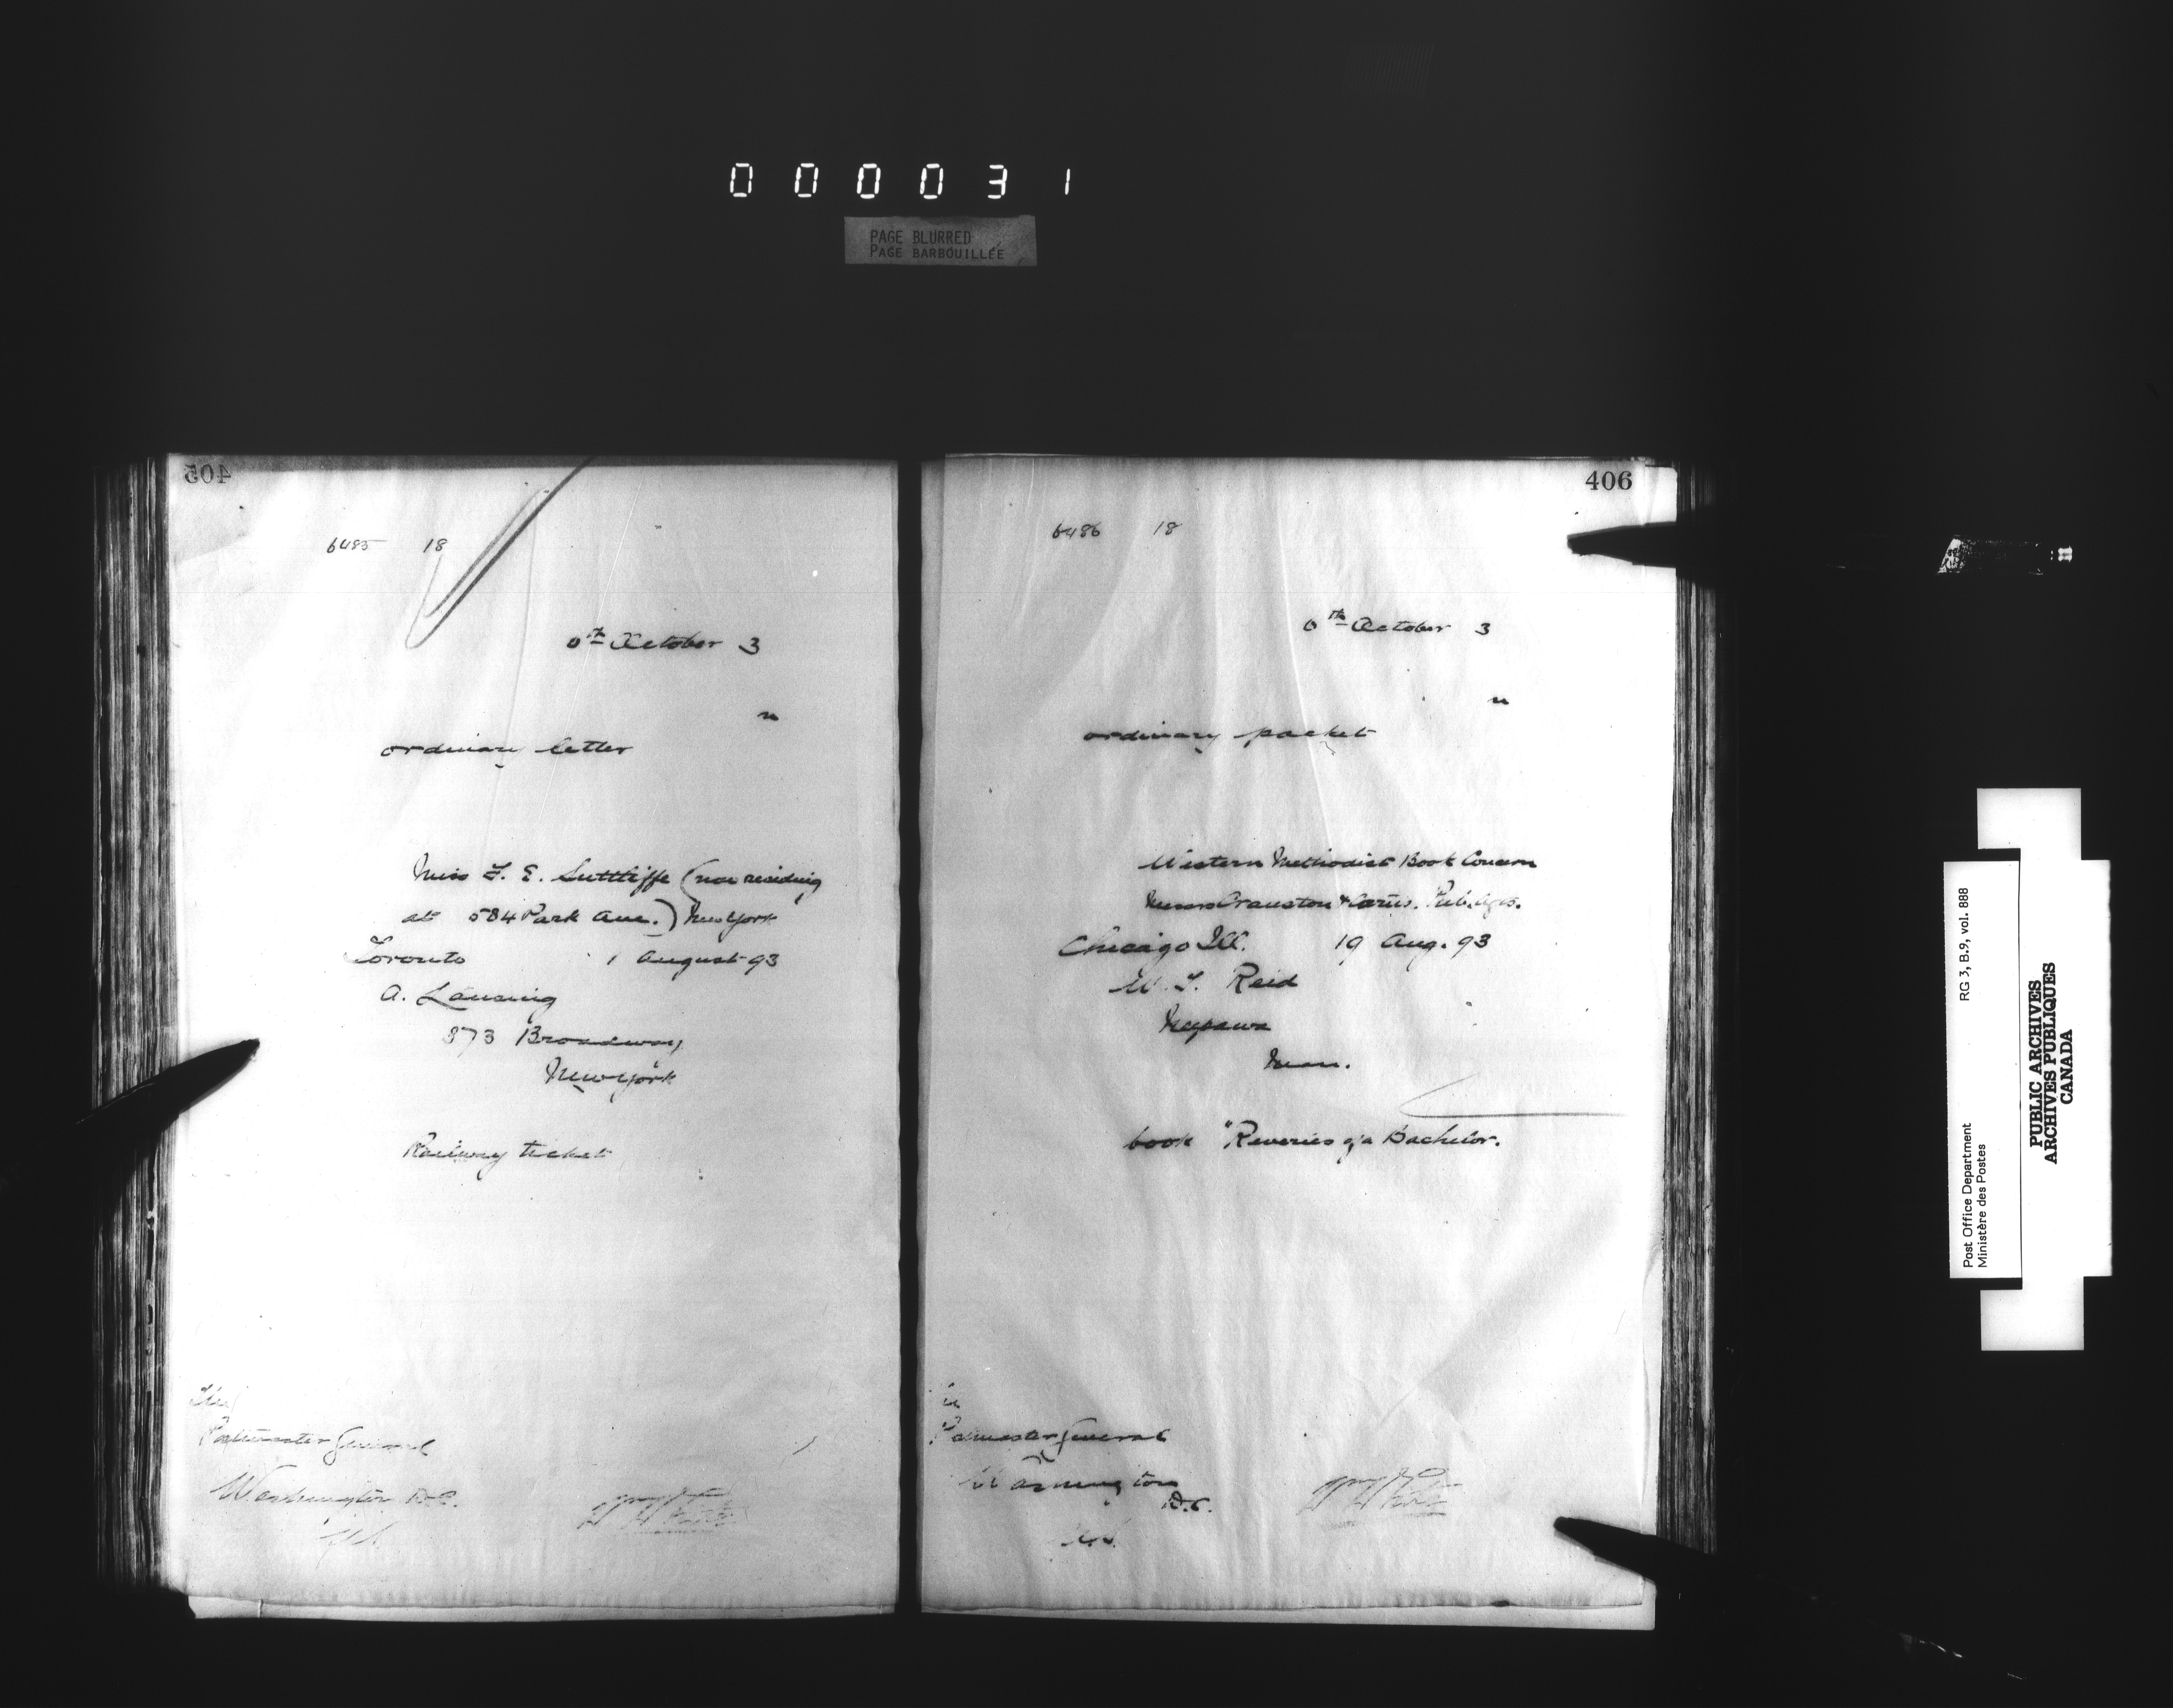 000031
PAGE BLURRED
PAGE BARBOUILLÉE
405
6485 18
0th October 3
n
ordinary letter
Miss F. E. Sutttiffe (now residing
at 584 Park Ave.) New York
Toronto 1 August 93
A. Lansing
373 Broadway
New York
Railway ticket
The
Postmaster General
Washington D.C.
406
6486 18
0th October 3
n
ordinary packet
Western Methodist Book Concern
Messrs Cranston & Pub. Agts.
Chicago Ill. 19 Aug. 93
W. J. Reid
Neepawa
Man.
book "Reveries of a Bachelor.
Postmaster General
Washington
D.C.
Post Office Department RG 3, B.9, vol. 888
Ministère des Postes
PUBLIC ARCHIVES
ARCHIVES PUBLIQUES
CANADA